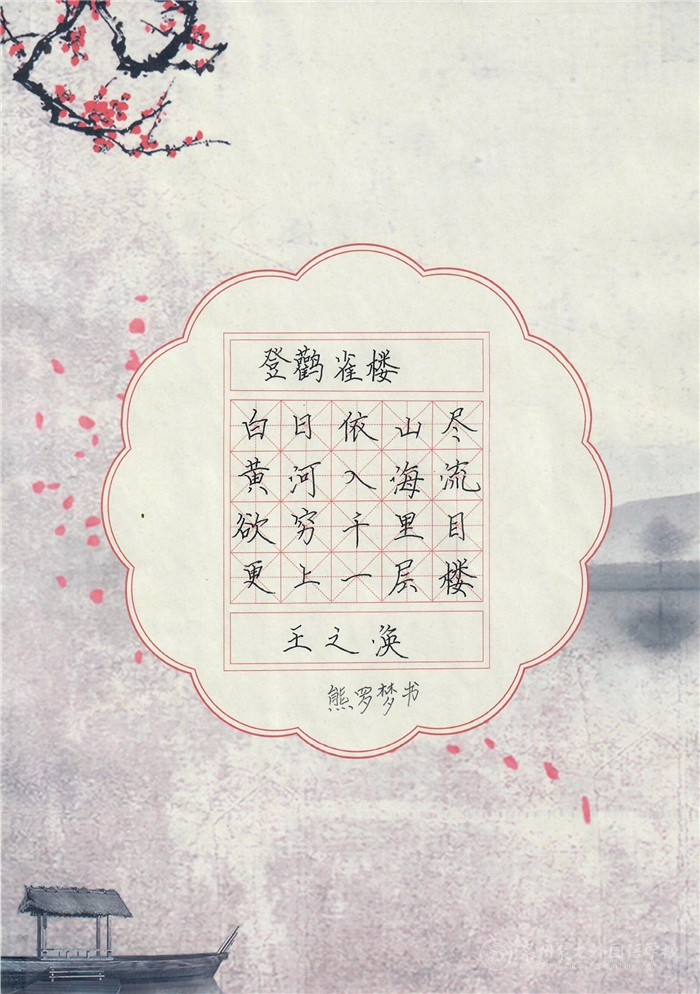 登鹳雀楼
白日依山尽
黄河入海流
欲穷千里目
更上一层楼
王之涣
熊罗梦书